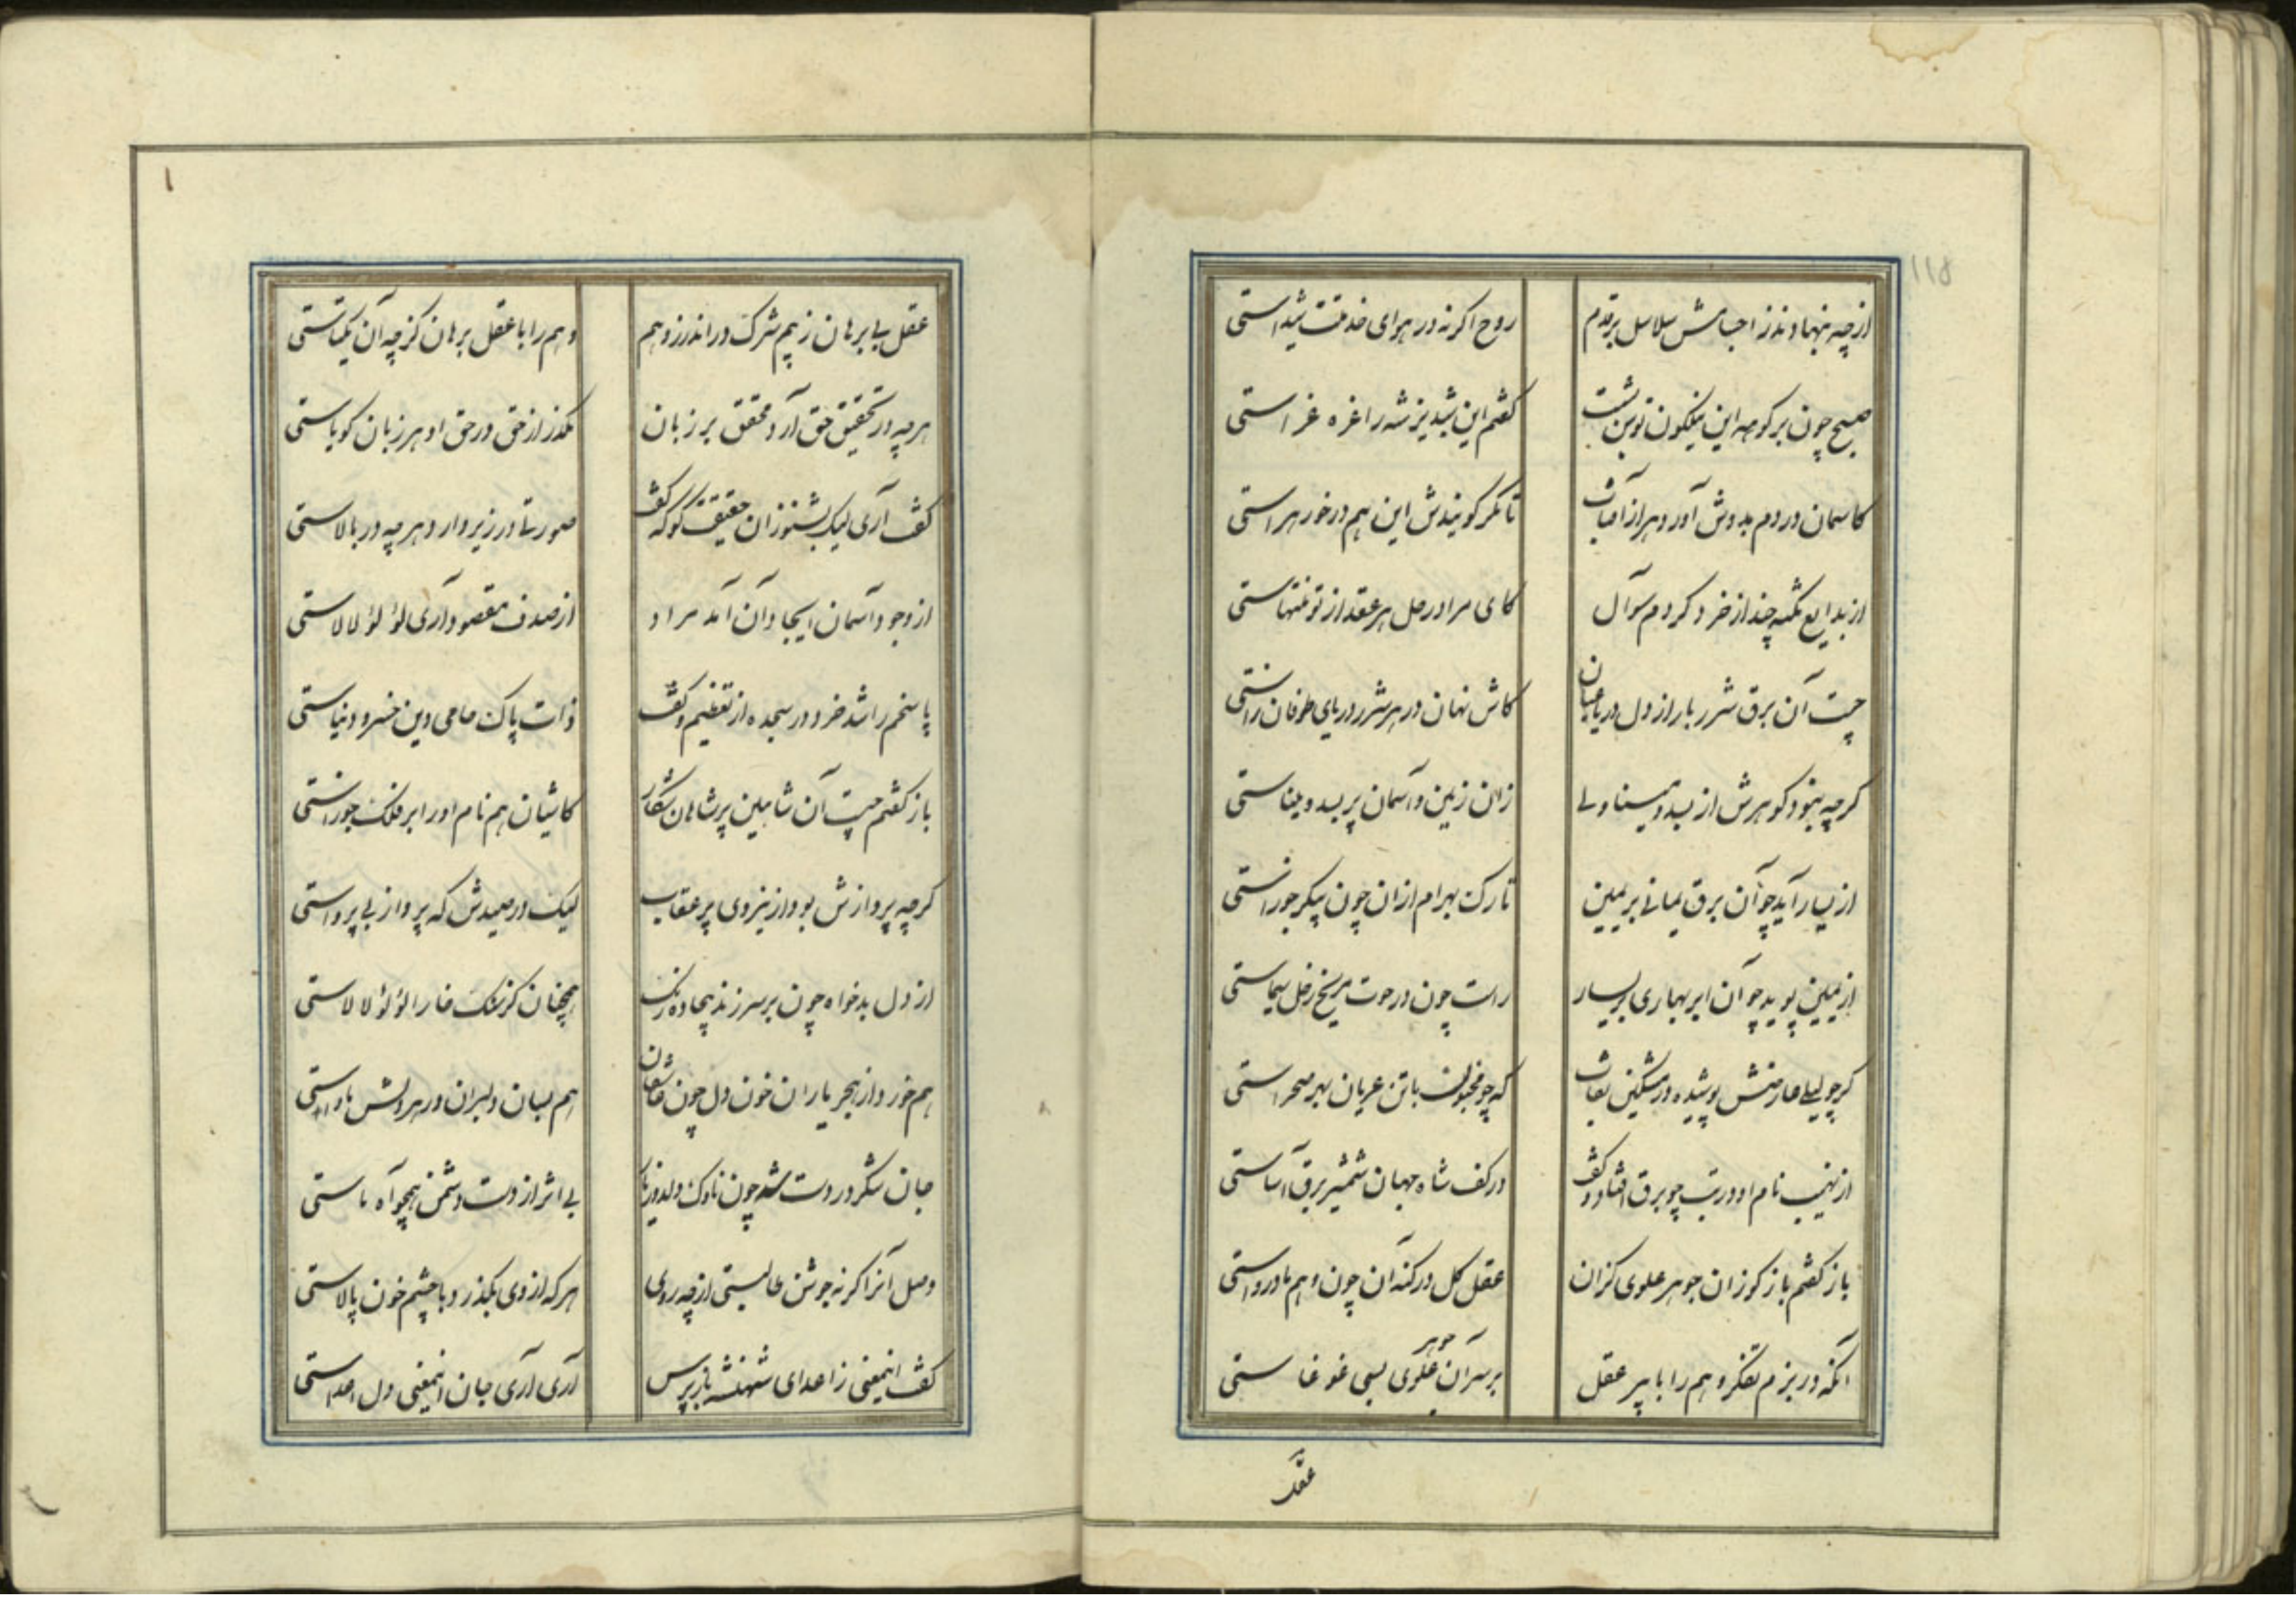 ۱۱۸
از چه بنهادند ز اجسامش سلاسل بر قدم
روح اگر نه در هوای خدمتت شیداستی
صبح چون بر کوهه این نیلگون توسن نشست
گفتم این شبدیز شه را غره غراستی
کاسمان در دم بدوش آورد هرا ز آفتاب
تا مگر گویندش این هم درخور هراستی
از بدایع نکته چند از خرد کردم سوآل
کای مرا در حل هر عقد از تو منتهاستی
چیست آن برق شرر بار از دل دریا عیان
کاش نهان در هر شرر دریای طوفان زاستی
گرچه نبود گوهرش از بسد و مینا ولی
زان زمین و آسمان پر بسد و میناستی
از یسار آید چو آن برق یمانی بر یمین
تارک بهرام ازان چون پیکر جوزاستی
از یمین پوید چو آن ابر بهاری بر یسار
راست چون در حوت مریخ زحل سیماستی
گر چو لیلی عارضش پوشیده در مشکین نقاب
که چو مجنون با تن عریان بهر صحراستی
از نهیب نام او در تب چو برق افتاد و گفت
در کف شاه جهان شمشیر برق آساستی
باز گفتم باز گو زان جوهر علوی کزان
عقل کل در کنه آن چون وهم نادرواستی
آنکه در بزم تفکر وهم را با پیر عقل
بر سر آن جوهر علوی بسی غوغاستی
عقل
۱
عقل بی برهان ز بیم شرک در اندرز وهم
وهم را با عقل برهان کز چه آن یکتاستی
هرچه در تحقیق حق آرد محقق بر زبان
بگذر از حق در حق او هر زبان گویاستی
گفت آری لیک بشنو زان حقیقت گو که گفت
صورتا در زیر دارد هرچه در بالاستی
از وجود آسمان ایجاد آن آمد مراد
از صدف مقصود آری لؤلؤ لالاستی
پاسخم را شد خرد در سجده از تعظیم و گفت
ذات پاک حامی دین خسرو دنیاستی
باز گفتم چیست آن شاهین پر شاهان شکار
کاشیان هم نام او را بر فلک جوزاستی
گرچه پروازش بود از نیروی پر عقاب
لیک در صیدش که پرواز بی پرواستی
از دل بدخواه چون بر سر زند بیجاده رنگ
همچنان کز سنگ خارا لؤلؤ لالاستی
هم خورد از هجر یاران خون دل چون عاشقان
هم بسان دلبران در هر دلش ماواستی
جان شکر در دست شه چون ناوک دلدوز ما
بی اثر از دست دشمن همچو آه ماستی
وصل آنرا گر نه جوشن طالبستی از چه روی
هر که از وی بگذرد با چشم خون پالاستی
گفت اینمعنی ز اعدای شهنشه بازپرس
آری آری جان اینمعنی دل اعداستی